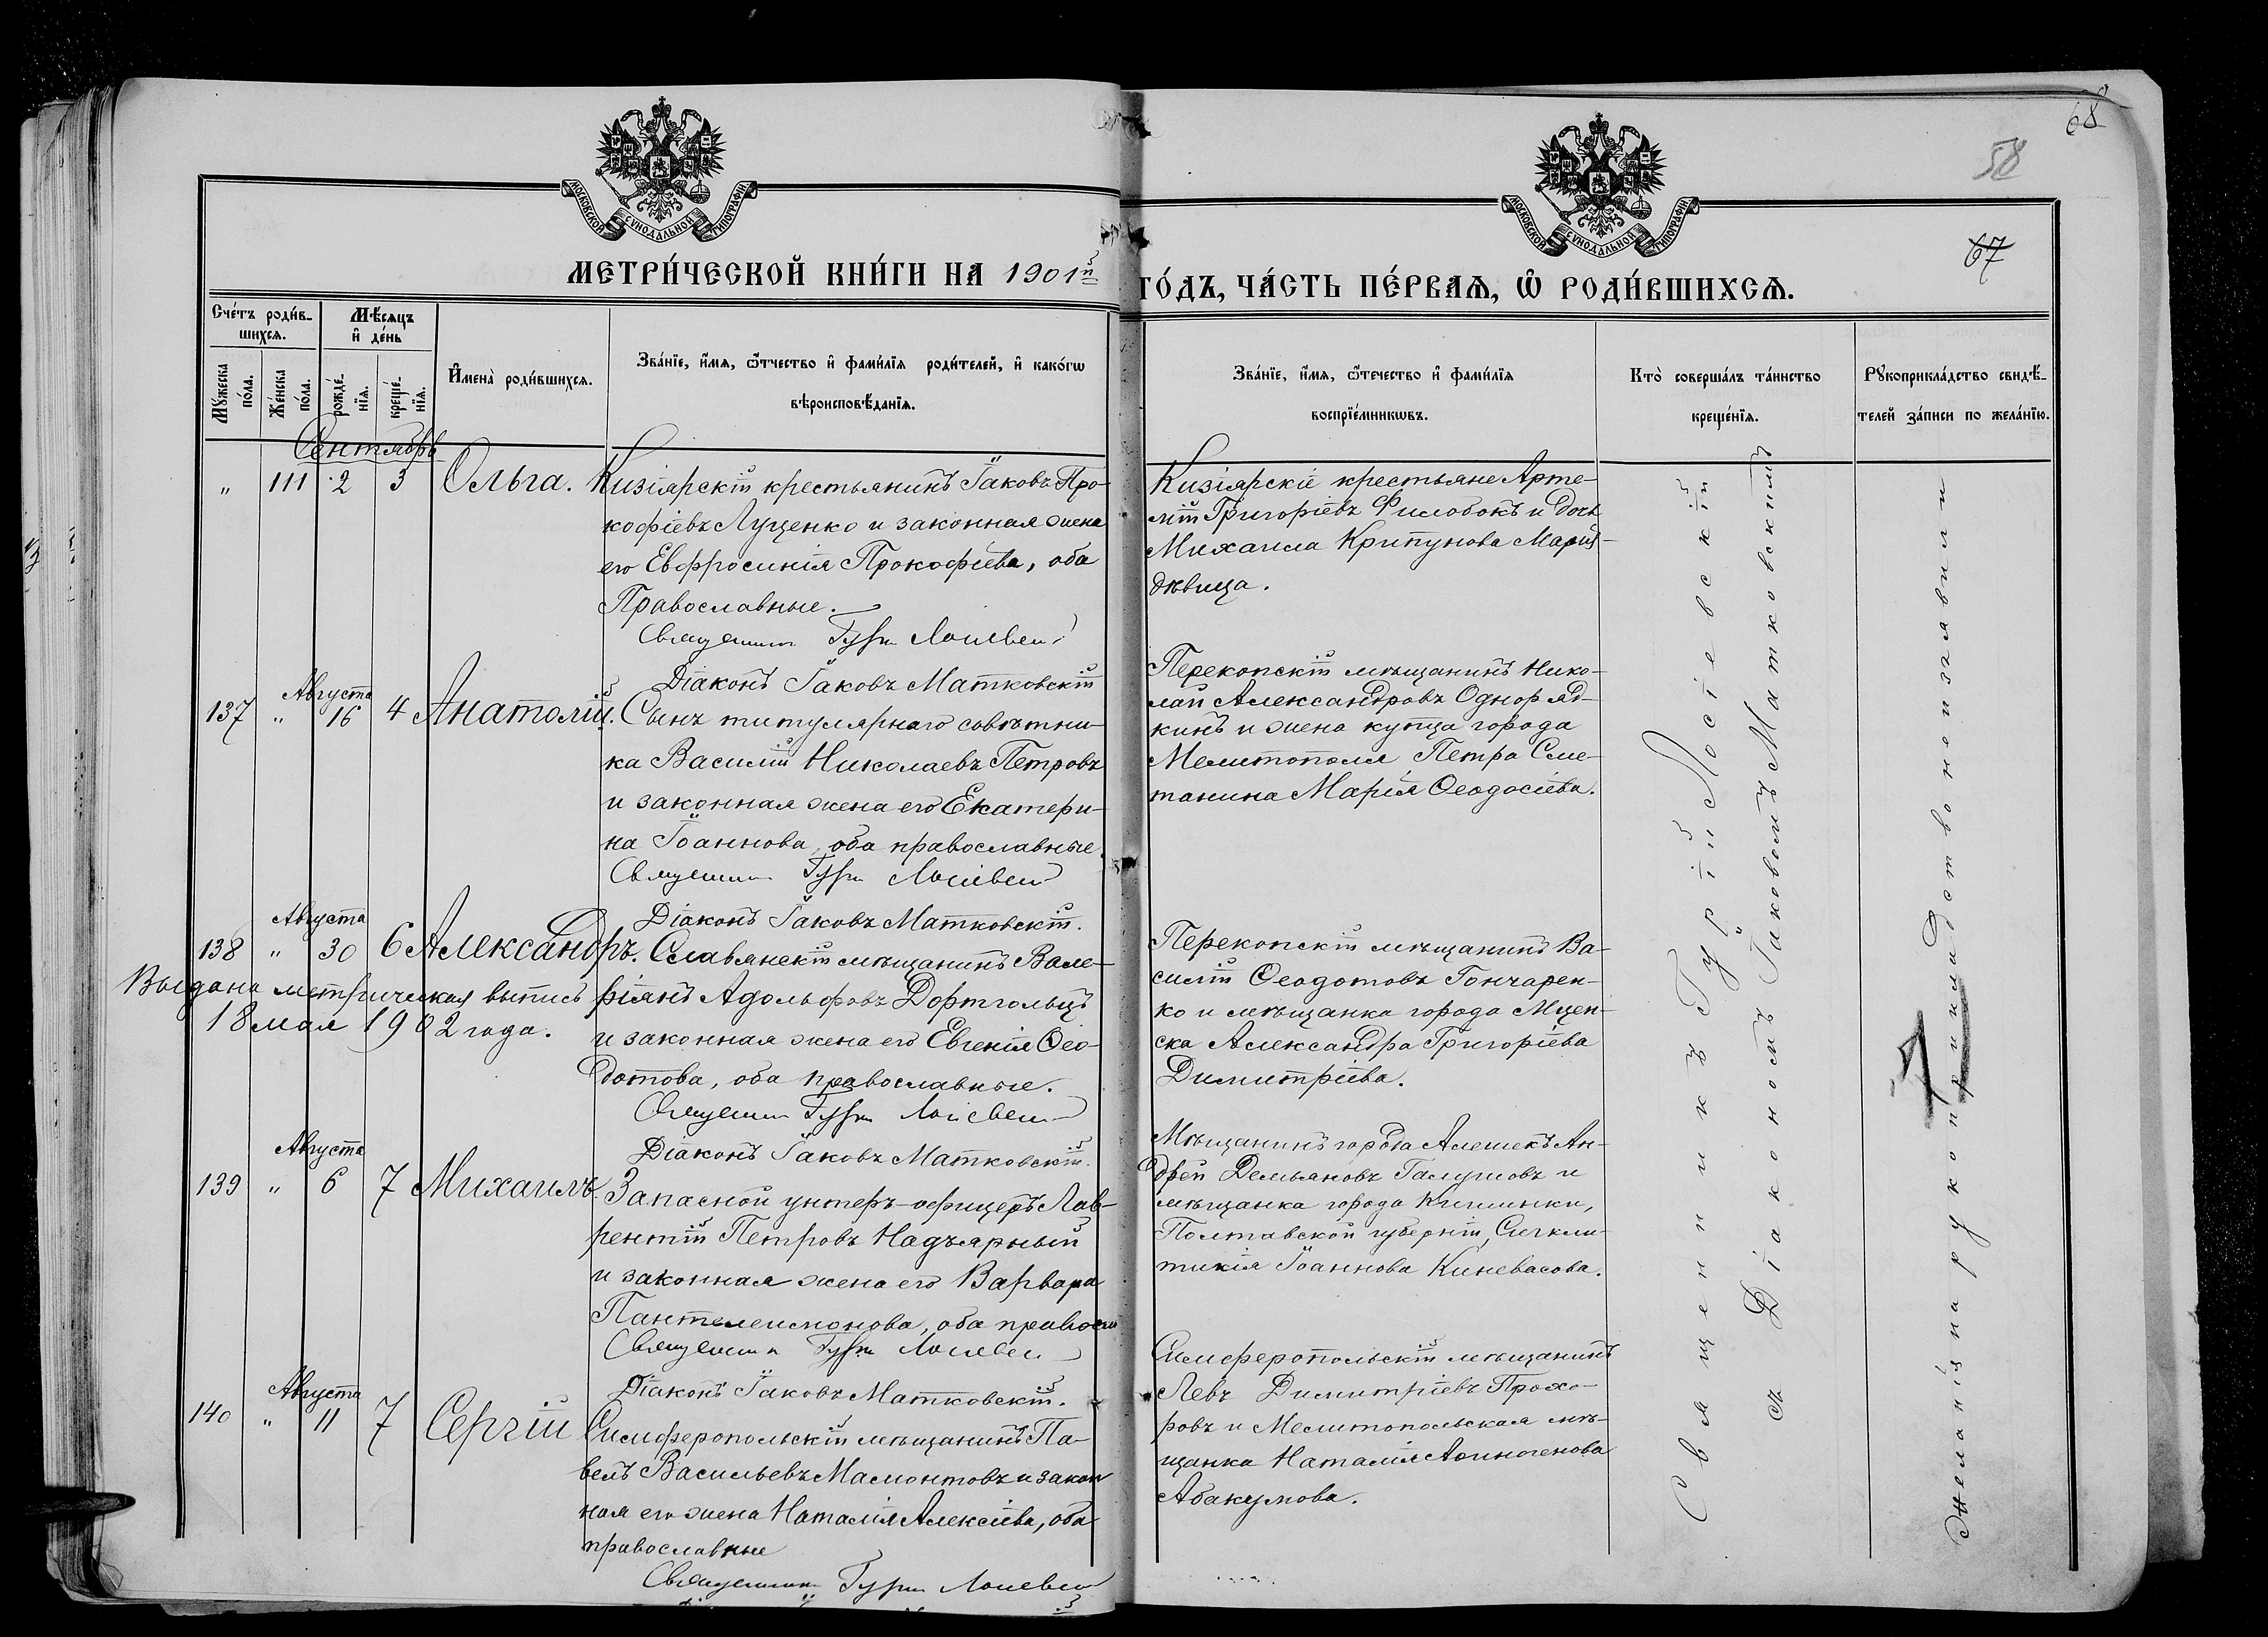 68
58
67
МОСКОВСКОЙ СѴНОДАЛЬНОЙ ТИПОГРАФІИ
МОСКОВСКОЙ СѴНОДАЛЬНОЙ ТИПОГРАФІИ
МЕТРИ́ЧЕСКОЙ КНИ́ГИ НА 1901й
ГО́ДЪ, ЧА́СТЬ ПЕ́РВАѦ, Ѽ РОДИ́ВШИХСѦ.
Сче́тъ роди́в-
шихсѧ.
Мѣ́сѧцъ
и҆ де́нь
Мꙋ́жеска
по́ла.
Же́нска
по́ла.
рожде́-
нїѧ.
креще́-
нїѧ.
И҆мена̀ роди́вшихсѧ.
Зва́нїе, и҆́мѧ, ѻ҆́тчество и҆ фами́лїѧ роди́телей, и҆ како́гѡ
вѣроисповѣ́данїѧ.
Зва́нїе, и҆́мѧ, ѻ҆́течество и҆ фами́лїѧ
воспрїе́мникѡвъ.
Кто̀ соверша́лъ та́инство
креще́нїѧ.
Рꙋкоприкла́дство свидѣ́-
телей за́писи по жела́нїю.
Сентябрь
„ 111 2 3 Ольга. Кизіярскій крестьянинъ Іаковъ Про-
кофіевъ Луценко и законная жена
его Евфросинія Прокофіева, оба
Православные.
Священникъ Гурій Лосіевскій
Діаконъ Іаковъ Матковскій
Кизіярскіе крестьяне Арте-
мій Григоріевъ Филобокъ и дочь
Михаила Крипунова Марія
дѣвица.
Августа
137 „ 16 4 Анатолій. Сынъ титулярнаго совѣтни-
ка Василій Николаевъ Петровъ
и законная жена его Екатери-
на Іоаннова, оба православные.
Священникъ Гурій Лосіевскій
Діаконъ Іаковъ Матковскій.
Перекопскій мѣщанинъ Нико-
лай Александровъ Одноряд-
кинъ и жена купца города
Мелитополя Петра Сме-
танина Марія Ѳеодосіева.
Августа
138 „ 30 6 Александръ. Славянскій мѣщанинъ Вале-
ріянъ Адольфовъ Дортгольцъ
и законная жена его Евгенія Ѳео-
дотова, оба православные.
Священникъ Гурій Лосіевскій
Діаконъ Іаковъ Матковскій.
Выдана метрическая выпись
18 мая 1902 года.
Перекопскій мѣщанинъ Ва-
силій Ѳеодотовъ Гончарен-
ко и мѣщанка города Мцен-
ска Александра Григоріева
Димитріева.
Августа
139 „ 6 7 Михаилъ. Запасной унтеръ-офицеръ Лав-
рентій Петровъ Надъярный
и законная жена его Варвара
Пантелеимонова, оба правосл
Священникъ Гурій Лосіевскій
Діаконъ Іаковъ Матковскій.
Мѣщанинъ города Алешекъ Ан-
дрей Демьяновъ Галушовъ и
мѣщанка города Кишинки,
Полтавской губерніи, Сигкли-
тикія Іоаннова Киневасова.
Августа
140 „ 11 7 Сергій Симферопольскій мѣщанинъ Па-
велъ Васильевъ Мамонтовъ и закон
ная его жена Наталія Алексіева, оба
православные
Священникъ Гурій Лосіевскій
Симферопольскій мѣщанинъ
Левъ Димитріевъ Прохо-
ровъ и Мелитопольская мѣ-
щанка Наталія Аѳиногенова
Абакумова.
Священникъ Гурій Лосіевскій
съ Діакономъ Іаковомъ Матковскимъ
Желанія на рукоприкладство не изъявили